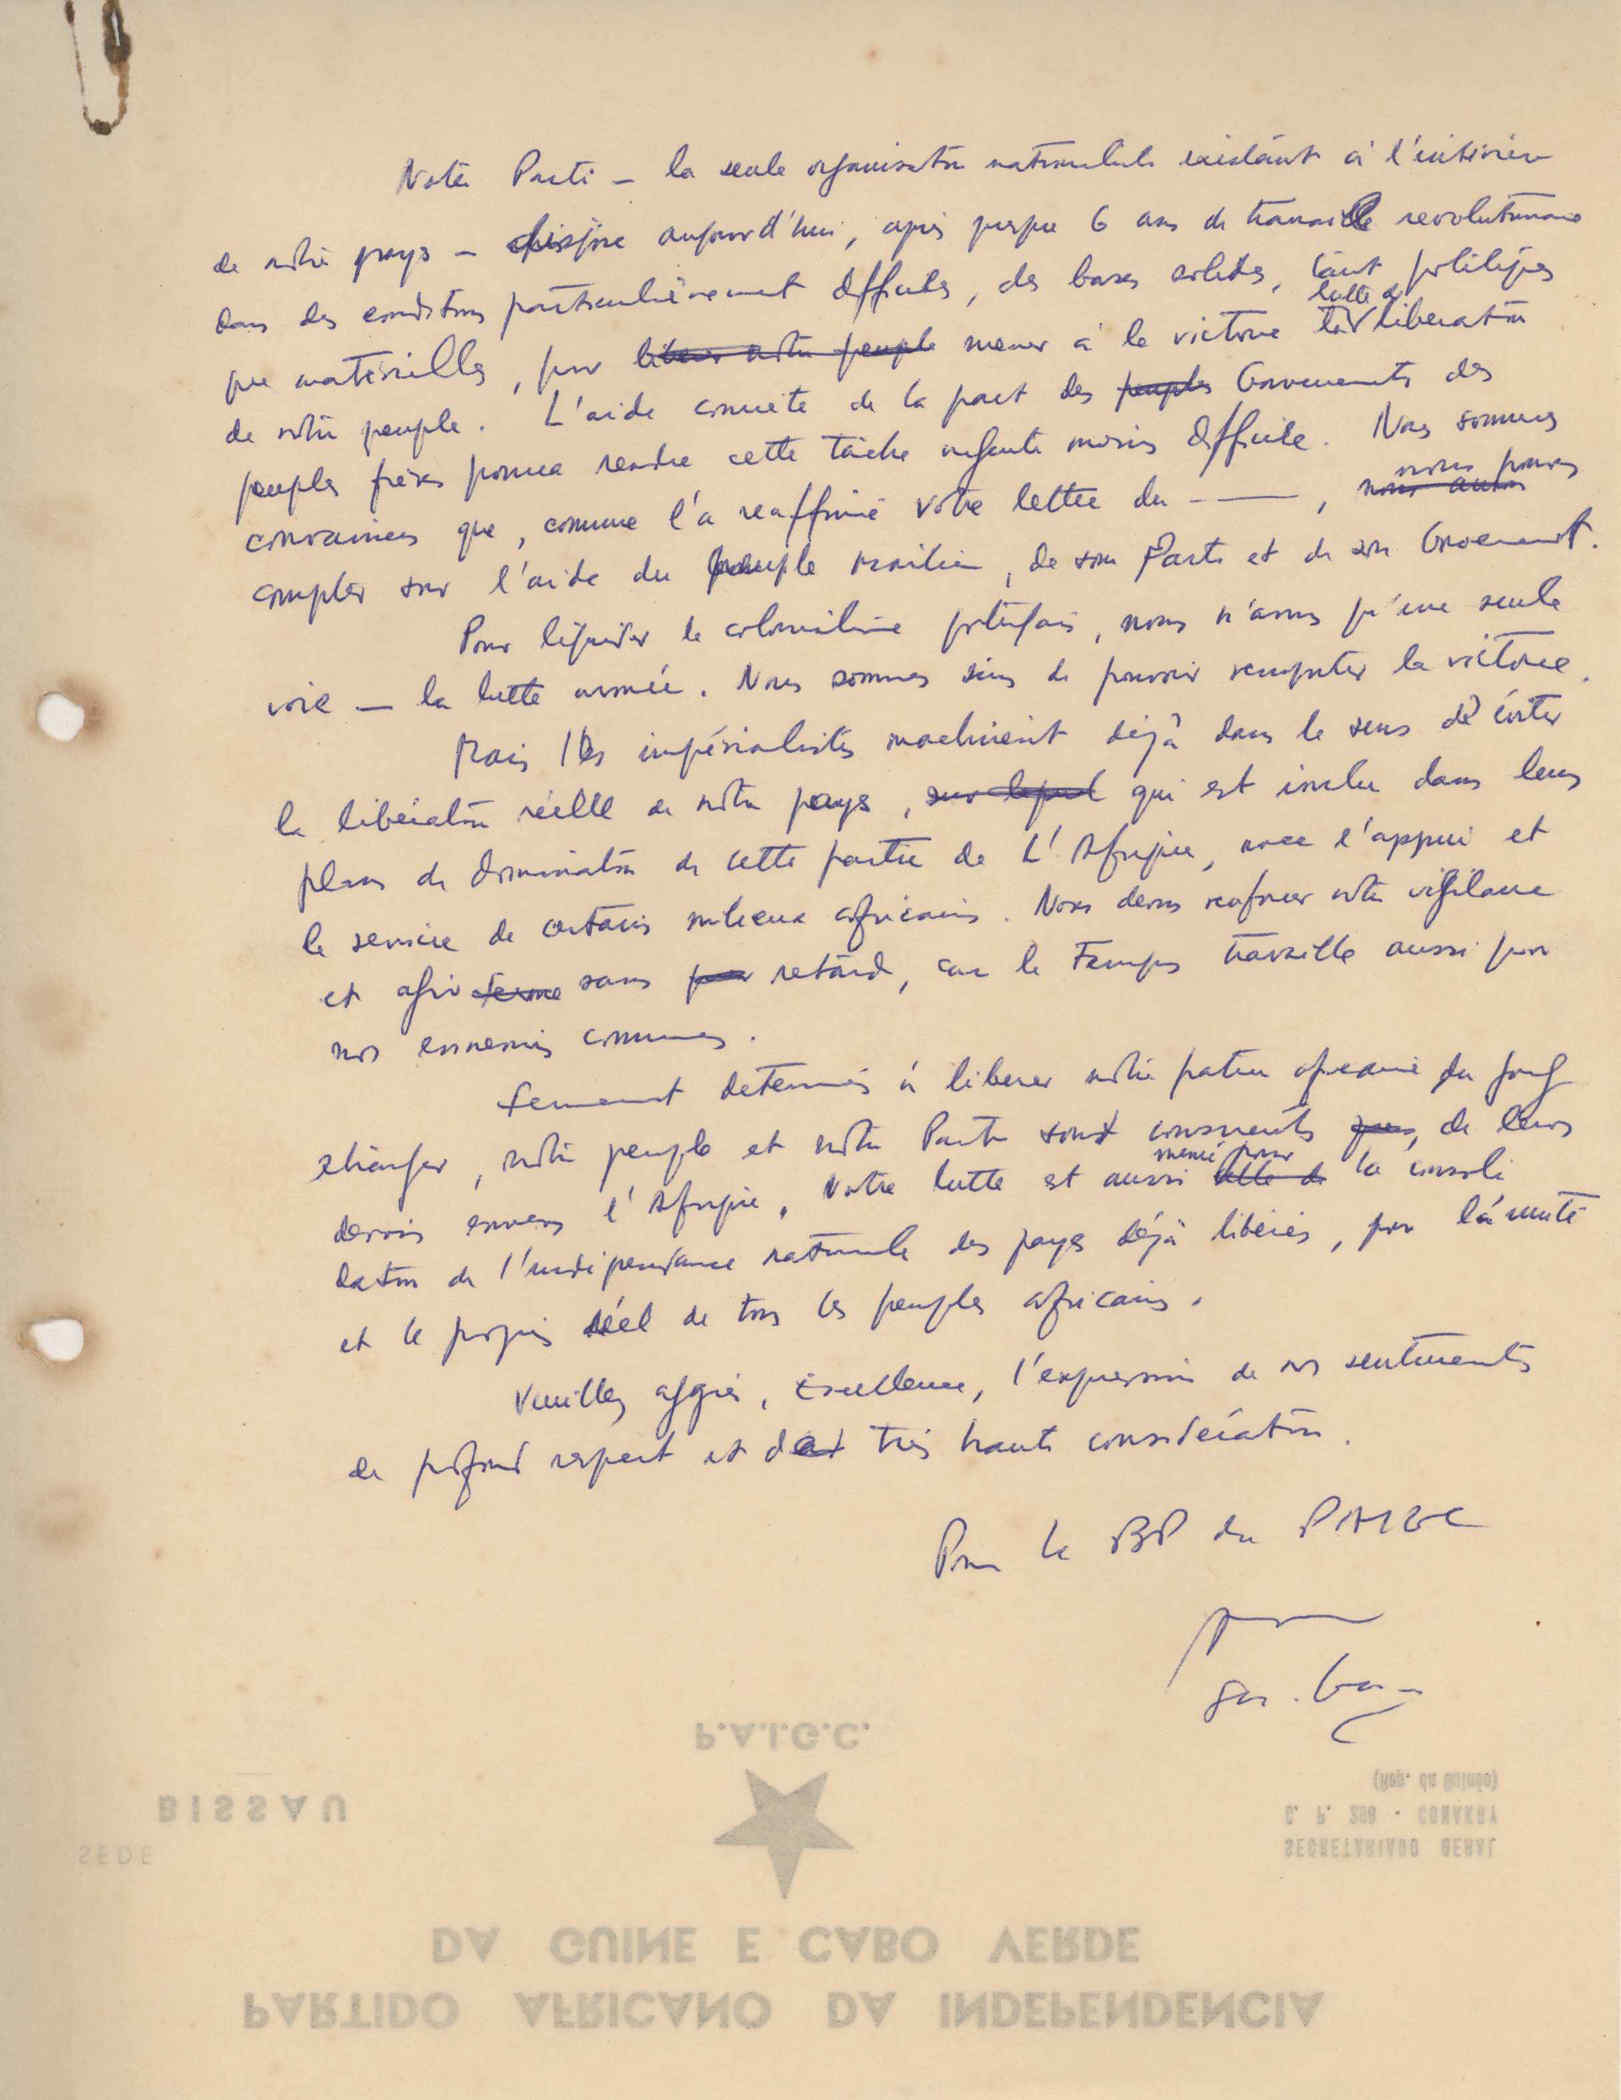 Notre Parti – la seule organisation nationaliste existant à l'intérieur
de notre pays – dispose aujourd'hui, après presque 6 ans de travail révolutionnaire
dans des conditions particulièrement difficiles, des bases solides, tant politiques
que matérielles, pour liberer notre peuple mener à la victoire la lutte de libération
de notre peuple. L'aide concrète de la part des peuples Gouvernements des
peuples frères pourra rendre cette tâche urgente moins difficile. Nous sommes
convaincus que, comme l'a reaffirmé votre lettre du ———, nous pouvons
compter sur l'aide du peuple malien, de son Parti et de son Gouvernement.
Pour liquider le colonialisme portugais, nous n'avons qu'une seule
voie – la lutte armée. Nous sommes sûrs de pouvoir remporter la victoire.
Mais les impérialistes machinent déjà dans le sens d'éviter
la libération réelle de notre pays, sur lequel qui est inclu dans leurs
plans de domination de cette partie de L'Afrique, avec l'appui et
le service de certains milieux africains. Nous devons renforcer notre vigilance
et agir ferme sans retard, car le temps travaille aussi pour
nos ennemis communs.
Fermement determinés à liberer notre patrie africaine du joug
étranger, notre peuple et notre Parti sont conscients de leurs
devoirs envers l'Afrique. Notre lutte est aussi menée pour celle de la consoli
dation de l'indépendance nationale des pays déjà libérés, pour l'unité
et le progrès réel de tous les peuples africains.
Veuillez agréer, Excellence, l'expression de nos sentiments
de profond respect et de très haute considération.
Pour le BP du PAIGC
P.A.I.G.C.
BISSAU
SEDE
(Rep. da Guiné)
C. P. 298 - CONAKRY
SECRETARIADO GERAL
DA GUINE E CABO VERDE
PARTIDO AFRICANO DA INDEPENDENCIA